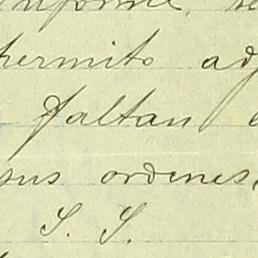 informe, se
permito ad
faltan e
sus ordenes,
S. S.